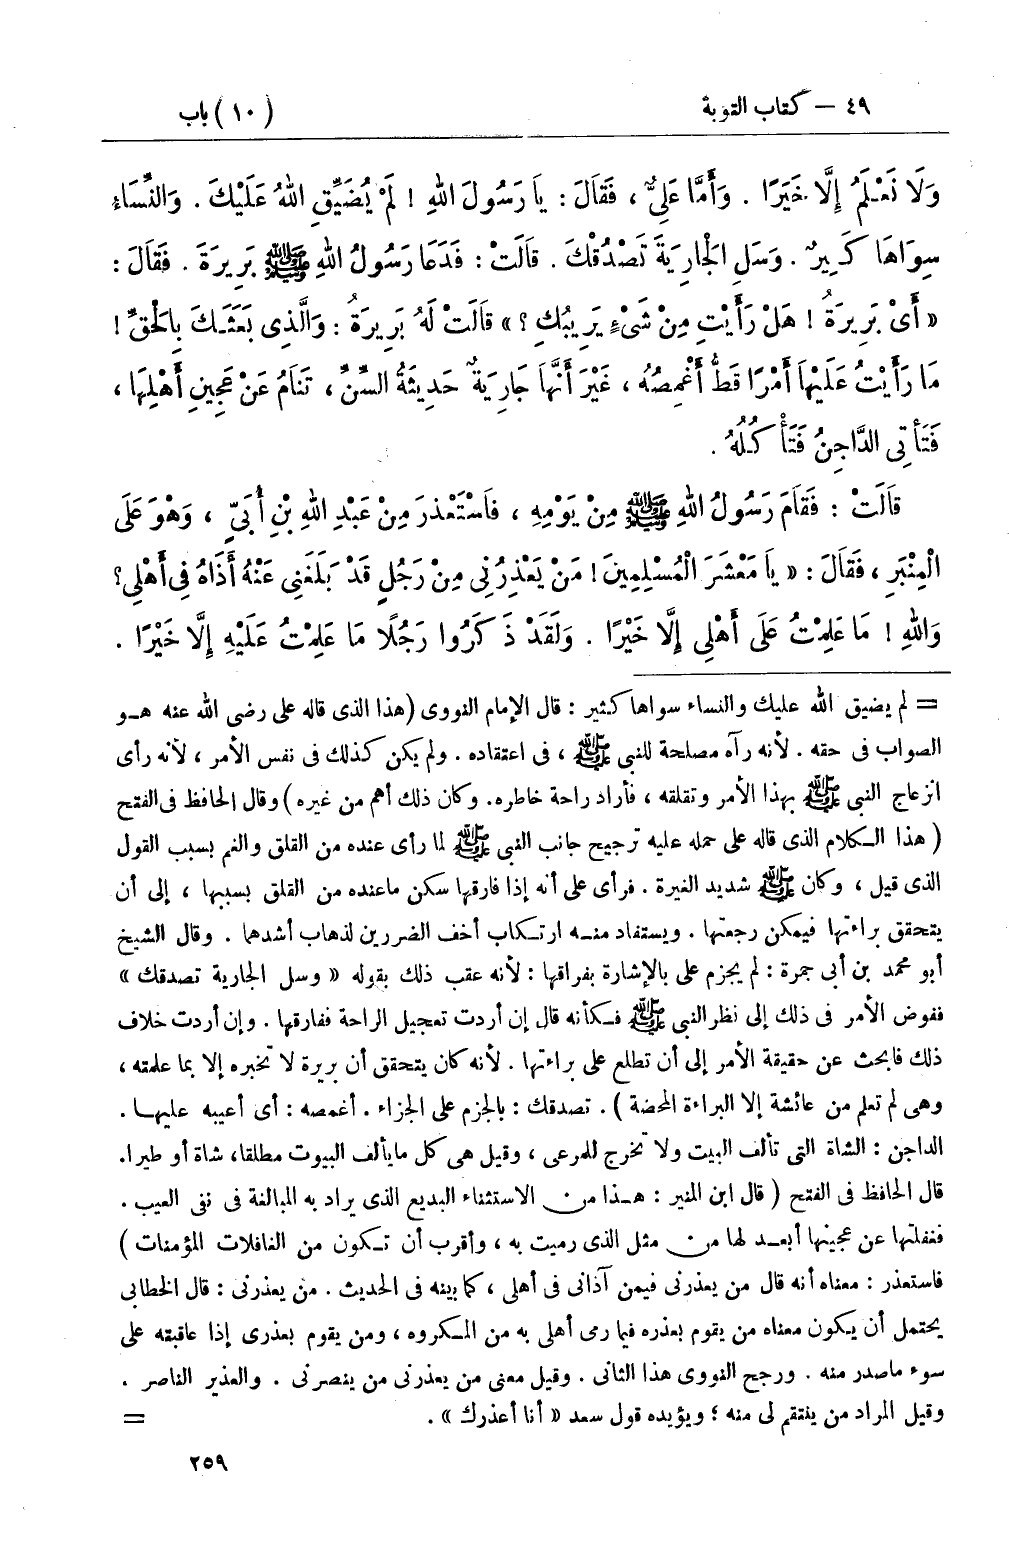 ٤٩ – كتاب التوبة (١٠) باب
وَلَا نَعْلَمُ إِلَّا خَيْرًا . وَأَمَّا عَلِيٌّ ، فَقَالَ : يَا رَسُولَ اللهِ ! لَمْ يُضَيِّقِ اللهُ عَلَيْكَ . وَالنِّسَاءُ
سِوَاهَا كَثِيرٌ . وَسَلِ الْجَارِيَةَ تَصْدُقْكَ . قَالَتْ : فَدَعَا رَسُولُ اللهِ ﷺ بَرِيرَةَ . فَقَالَ :
« أَيْ بَرِيرَةُ ! هَلْ رَأَيْتِ مِنْ شَيْءٍ يَرِيبُكِ ؟ » قَالَتْ لَهُ بَرِيرَةُ : وَالَّذِي بَعَثَكَ بِالْحَقِّ !
مَا رَأَيْتُ عَلَيْهَا أَمْرًا قَطُّ أَغْمِصُهُ ، غَيْرَ أَنَّهَا جَارِيَةٌ حَدِيثَةُ السِّنِّ ، تَنَامُ عَنْ عَجِينِ أَهْلِهَا ،
فَتَأْتِي الدَّاجِنُ فَتَأْكُلُهُ .
قَالَتْ : فَقَامَ رَسُولُ اللهِ ﷺ مِنْ يَوْمِهِ ، فَاسْتَعْذَرَ مِنْ عَبْدِ اللهِ بْنِ أُبَيٍّ ، وَهْوَ عَلَى
الْمِنْبَرِ ، فَقَالَ : « يَا مَعْشَرَ الْمُسْلِمِينَ ! مَنْ يَعْذِرُنِي مِنْ رَجُلٍ قَدْ بَلَغَنِي عَنْهُ أَذَاهُ فِي أَهْلِي ؟
وَاللهِ ! مَا عَلِمْتُ عَلَى أَهْلِي إِلَّا خَيْرًا . وَلَقَدْ ذَكَرُوا رَجُلًا مَا عَلِمْتُ عَلَيْهِ إِلَّا خَيْرًا .
= لم يضيق الله عليك والنساء سواها كثير : قال الإمام النووى (هذا الذى قاله على رضى الله عنه هو
الصواب فى حقه . لأنه رآه مصلحة للنبي ﷺ ، فى اعتقاده . ولم يكن كذلك فى نفس الأمر ، لأنه رأى
انزعاج النبي ﷺ بهذا الأمر وتقلقه ، فأراد راحة خاطره. وكان ذلك أهم من غيره) وقال الحافظ فى الفتح
( هذا الكلام الذى قاله على حمله عليه ترجيح جانب النبي ﷺ لما رأى عنده من القلق والغم بسبب القول
الذى قيل ، وكان ﷺ شديد الغيرة . فرأى على أنه إذا فارقها سكن ماعنده من القلق بسببها ، إلى أن
يتحقق براءتها فيمكن رجعتها . ويستفاد منه ارتكاب أخف الضررين لذهاب أشدهما . وقال الشيخ
أبو محمد بن أبى جمرة : لم يجزم على بالإشارة بفراقها : لأنه عقب ذلك بقوله « وسل الجارية تصدقك »
ففوض الأمر فى ذلك إلى نظر النبي ﷺ فكأنه قال إن أردت تعجيل الراحة ففارقها . وإن أردت خلاف
ذلك فابحث عن حقيقة الأمر إلى أن تطلع على براءتها . لأنه كان يتحقق أن بريرة لا تخبره إلا بما علمته ،
وهى لم تعلم من عائشة إلا البراءة المحضة ) . تصدقك : بالجزم على الجزاء . أغمصه : أى أعيبه عليها .
الداجن : الشاة التى تألف البيت ولا تخرج للمرعى ، وقيل هى كل مايألف البيوت مطلقا، شاة أو طيرا.
قال الحافظ فى الفتح ( قال ابن المنير : هذا من الاستثناء البديع الذى يراد به المبالغة فى نفى العيب .
فغفلتها عن عجينها أبعد لها من مثل الذى رميت به ، وأقرب أن تكون من الغافلات المؤمنات )
فاستعذر : معناه أنه قال من يعذرنى فيمن آذانى فى أهلى ، كما بينه فى الحديث . من يعذرنى : قال الخطابى
يحتمل أن يكون معناه من يقوم بعذره فيما رمى أهلى به من المكروه ، ومن يقوم بعذرى إذا عاقبته على
سوء ماصدر منه . ورجح النووى هذا الثانى . وقيل معنى من يعذرنى من ينصرنى . والعذير الناصر .
وقيل المراد من ينتقم لى منه ؛ ويؤيده قول سعد « أنا أعذرك » . =
٢٥٩